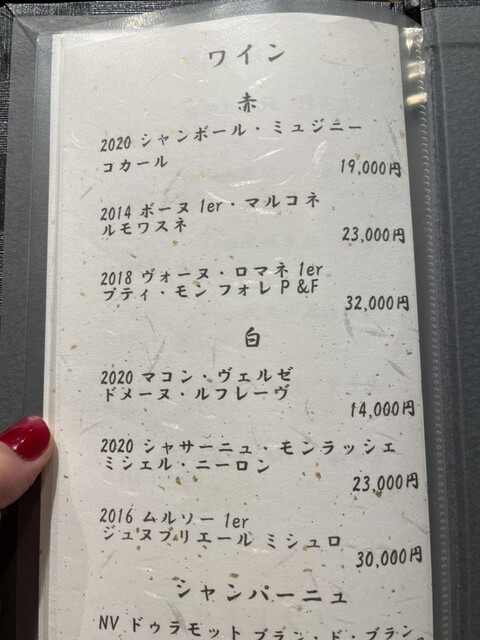 ワイン
赤
2020 シャンボール・ミュジニー
コカール
19,000円
2014 ボーヌ 1er・マルコネ
ルモワスネ
23,000円
2018 ヴォーヌ・ロマネ 1er
プティ・モン フォレ P&F
32,000円
白
2020 マコン・ヴェルゼ
ドメーヌ・ルフレーヴ
14,000円
2020 シャサーニュ・モンラッシェ
ミシェル・ニーロン
23,000円
2016 ムルソー 1er
ジュヌブリエール ミシュロ
30,000円
シャンパーニュ
NV ドゥラモット ブラン・ド・ブラン